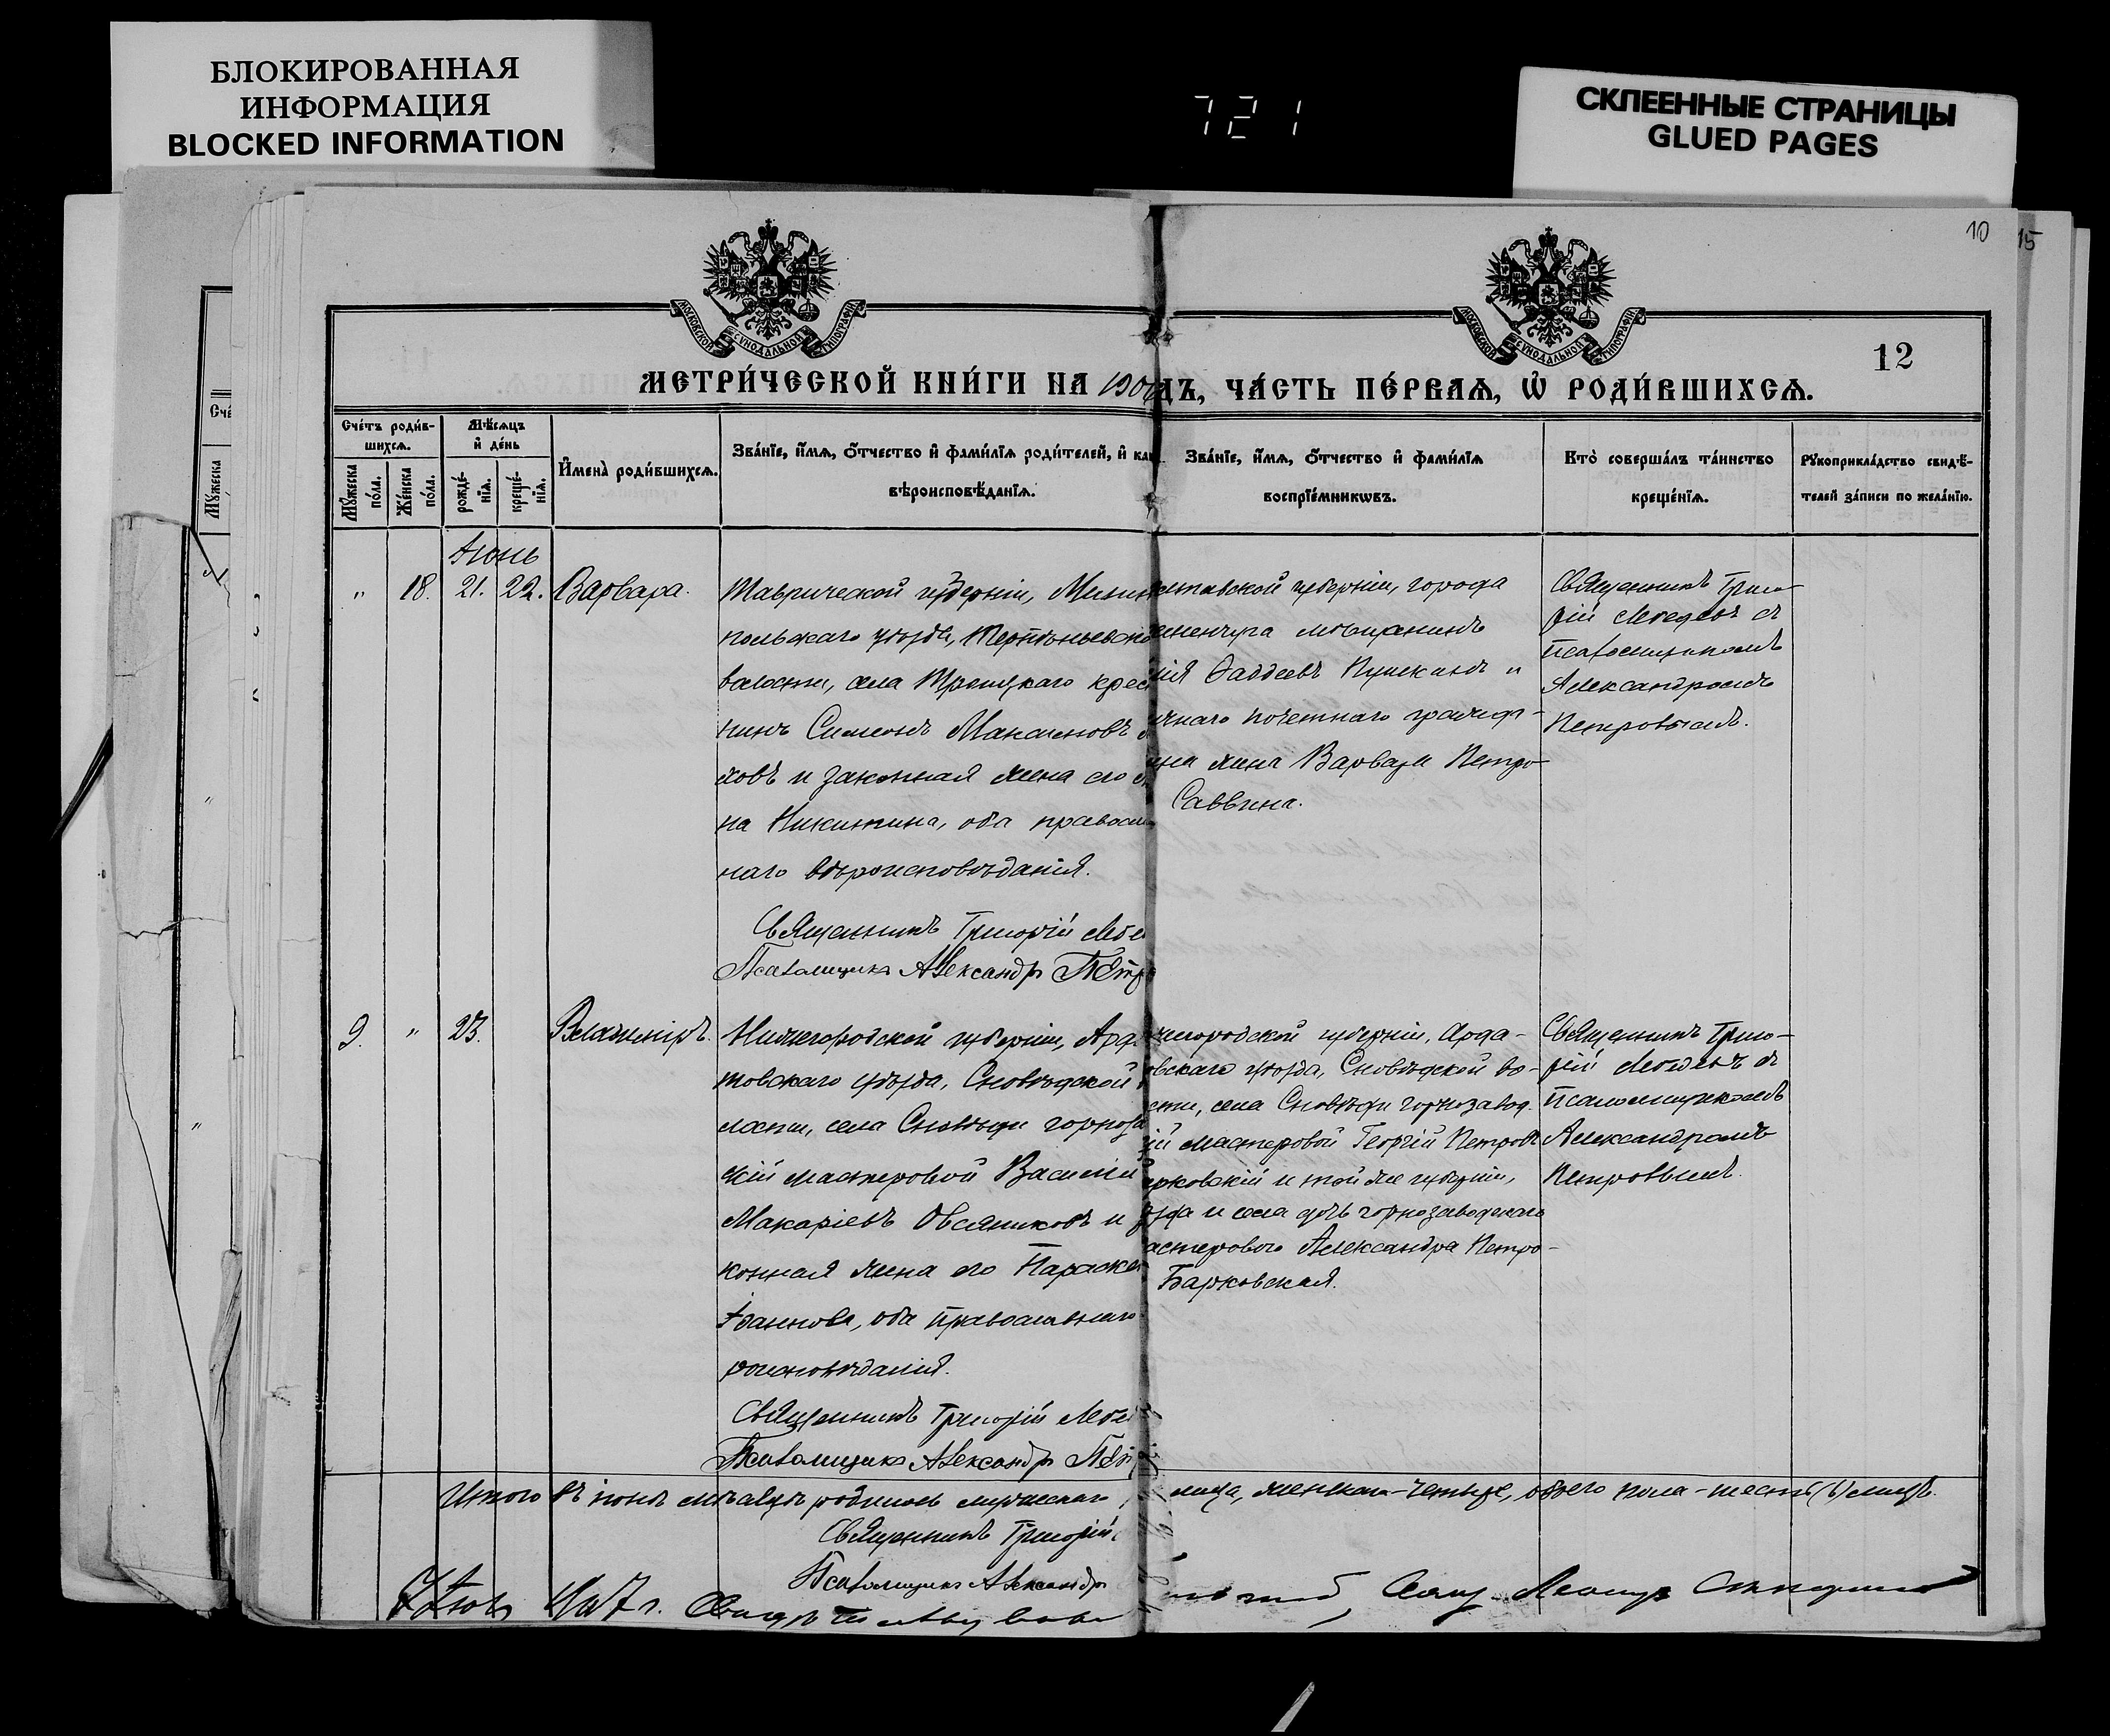 БЛОКИРОВАННАЯ
ИНФОРМАЦИЯ
BLOCKED INFORMATION
721
СКЛЕЕННЫЕ СТРАНИЦЫ
GLUED PAGES
10 15
МОСКОВСКОЙ СѴНОДАЛЬНОЙ ТИПОГРАФІИ
МОСКОВСКОЙ СѴНОДАЛЬНОЙ ТИПОГРАФІИ
12
МЕТРИ́ЧЕСКОЙ КНИ́ГИ НА 190
ДЪ, ЧА́СТЬ ПЕ́РВАѦ, Ѡ҆ РОДИ́ВШИХСѦ.
Сче́тъ роди́в-
шихсѧ.
Мꙋ́жеска по́ла.
Же́нска по́ла.
Мѣ́сѧцъ
и҆ де́нь
рожде́-
нїѧ.
креще́-
нїѧ.
И҆мена̀ роди́вшихсѧ.
Зва́нїе, и҆́мѧ, ѻ҆́тчество и҆ фами́лїѧ роди́телей, и҆ ка
вѣроисповѣ́данїѧ.
Зва́нїе, и҆́мѧ, ѻ҆́тчество и҆ фами́лїѧ
воспрїе́мникѡвъ.
Кто̀ соверша́лъ та́инство
креще́нїѧ.
Рꙋкоприкла́дство свидѣ́-
телей за́писи по жела́нїю.
Сче́
Мꙋжеска
Іюнь
" 18. 21. 22. Варвара.
Таврической губерніи, Мели
польскаго уѣзда,
волости, села Троицкаго крес
нинъ Симеонъ Максимовъ
ковъ и законная жена его
на Никитина, оба правосла
наго вѣроисповѣданія.
Священникъ Григорій Лебе
Псаломщикъ Александръ Петр
лтавской губерніи, города
еменчуга мѣщанинъ
Фаддеевъ Пушкинъ и
чнаго почетнаго гражда-
ина жена Варвара Петро-
Саввина.
Священникъ Григо-
рій Лебедевъ съ
псаломщикомъ
Александромъ
Петровымъ.
9. " 23. Владиміръ.
Нижегородской губерніи, Арда
товскаго уѣзда, Сноведской
лости, села Сноведи горноза
кій мастеровой Василій
Макаріевъ Овсянниковъ и
конная жена его Параске
Іоаннова, оба православнаго
роисповѣданія.
Священникъ Григорій Лебе
Псаломщикъ Александръ Петр
жегородской губерніи, Арда-
овскаго уѣзда, Сноведской во-
сти, села Сноведи горнозавод-
ій мастеровой Георгій Петровъ
арковскій и той же губерніи,
ѣзда и села дочь горнозаводскаго
астерового Александра Петро-
Барковская.
Священникъ Григо-
рій Лебедевъ съ
псаломщикомъ
Александромъ
Петровымъ.
Итого въ іюнѣ мѣсяцѣ родилось мужескаго
лица, женскаго-четыре, обоего пола-шесть (6) лицъ.
Священникъ Григорій
Псаломщикъ Александръ